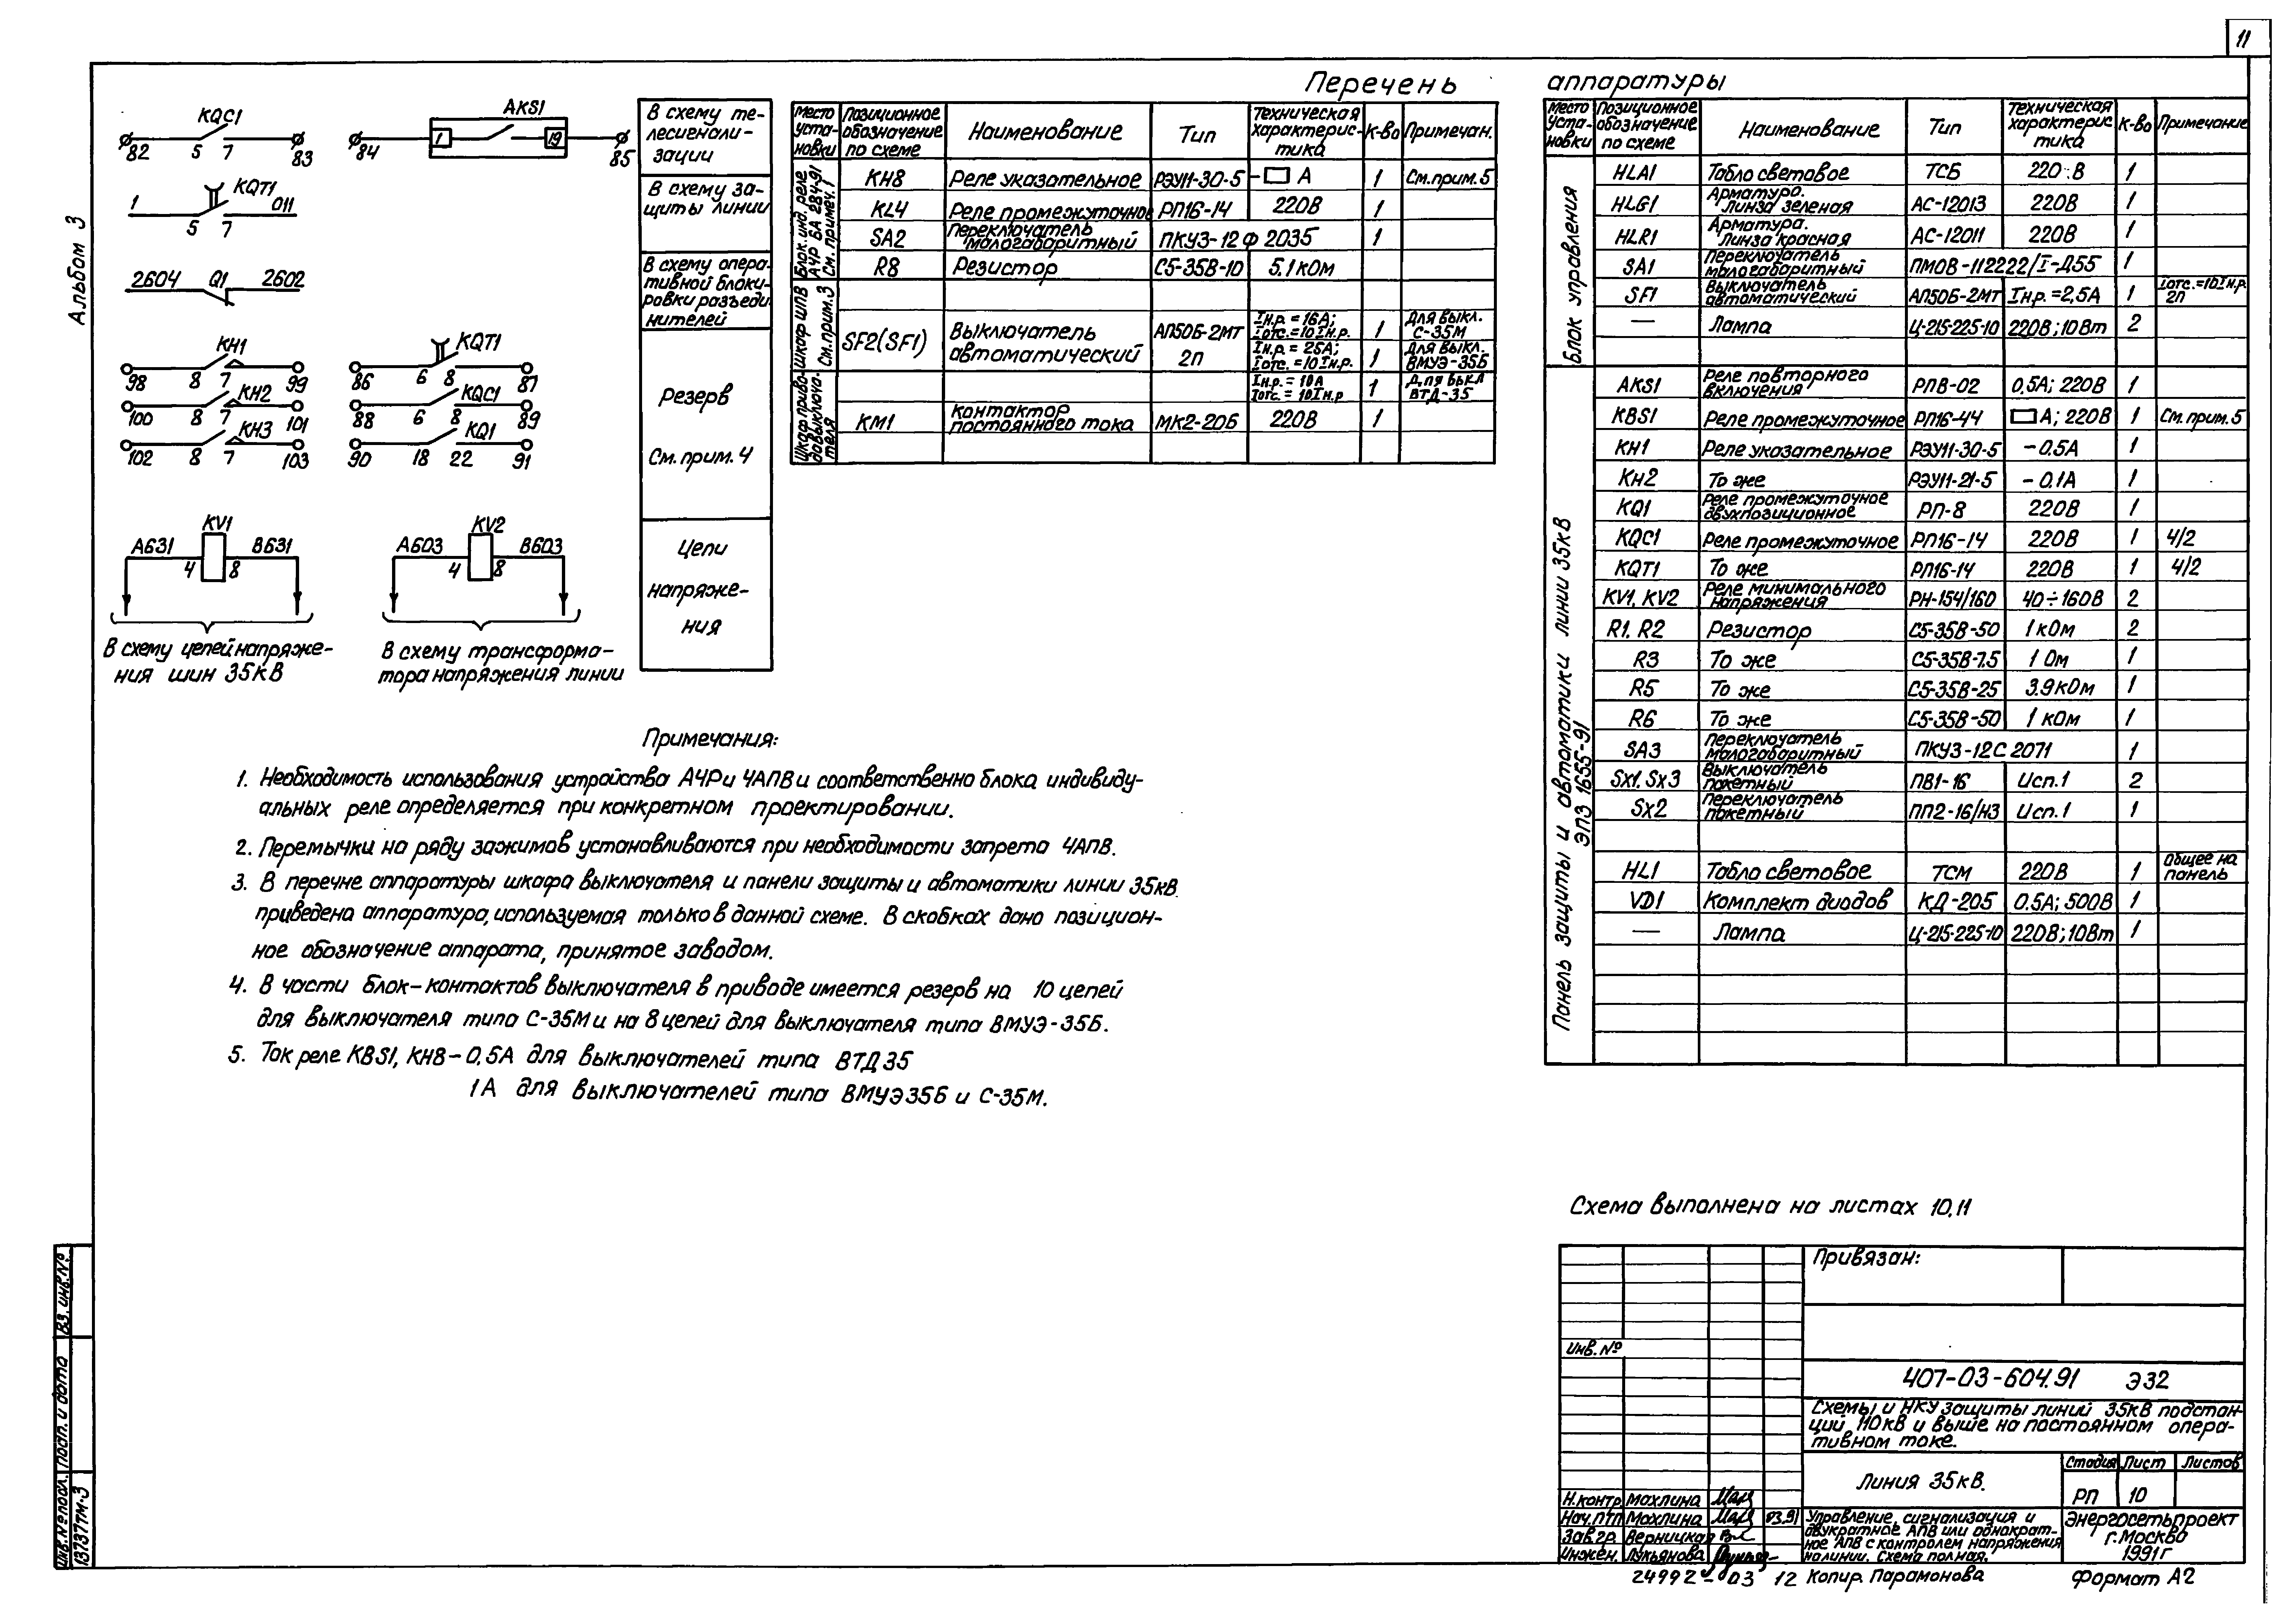 11
Альбом 3
KQC1
82 5 7 83
AKS1
84 1 19 85
В схему те-
лесигнали-
зации
1 KQT1 011
5 7
В схему за-
щиты линии
2604 Q1 2602
В схему опера-
тивной блоки-
ровки разъеди-
нителей
KH1
98 8 7 99
KH2
100 8 7 101
KH3
102 8 7 103
KQT1
86 6 8 87
KQC1
88 6 8 89
KQ1
90 18 22 91
Резерв
См. прим. 4
KV1
A631 B631
4 8
KV2
A603 B603
4 8
Цепи
напряже-
ния
В схему цепей напряже-
ния шин 35кВ
В схему трансформа-
тора напряжения линии
Перечень аппаратуры
Место уста-новки | Позиционное обозначение по схеме | Наименование | Тип | Техническая характерис-тика | К-во | Примечан.
Блок инд. реле АЧР БА 284-91 См. примеч. 1
KH8 Реле указательное РЭУ11-30-5 - □ А 1 См. прим. 5
KL4 Реле промежуточное РП16-14 220В 1
SA2 Переключатель малогабаритный ПКУ3-12Ф 2035 1
R8 Резистор С5-35В-10 5.1кОм 1
Шкаф ШПВ См. прим. 3
SF2(SF1) Выключатель автоматический АП50Б-2МТ 2п Iн.р. = 16А; Iотс. = 10 Iн.р. 1 Для выкл. С-35М
Iн.р. = 25А; Iотс. = 10 Iн.р. 1 Для выкл. ВМУЭ-35Б
Шкаф приво-да выключа-теля
Iн.р. = 10А Iотс. = 10 Iн.р 1 Для выкл ВТД-35
KM1 контактор постоянного тока МК2-20Б 220В 1
Место уста-новки | Позиционное обозначение по схеме | Наименование | Тип | Техническая характерис-тика | К-во | Примечание
Блок управления
HLA1 Табло световое ТСБ 220 В 1
HLG1 Арматура. Линза зеленая АС-12013 220В 1
HLR1 Арматура. Линза красная АС-12011 220В 1
SA1 Переключатель малогабаритный ПМОВ-112222/I-Д55 1
SF1 Выключатель автоматический АП50Б-2МТ Iн.р. = 2,5А 1 Iотс.=10Iн.р. 2п
— Лампа Ц-215-225-10 220В; 10Вт 2
Панель защиты и автоматики линии 35кВ ЭПЗ 1655-91
AKS1 Реле повторного включения РПВ-02 0,5А; 220В 1
KBS1 Реле промежуточное РП16-44 □ А; 220В 1 См. прим. 5
KH1 Реле указательное РЭУ11-30-5 - 0.5А 1
KH2 То же РЭУ11-21-5 - 0.1А 1
KQ1 Реле промежуточное двухпозиционное РП-8 220В 1
KQC1 Реле промежуточное РП16-14 220В 1 4/2
KQT1 То же РП16-14 220В 1 4/2
KV1, KV2 Реле минимального напряжения РН-154/160 40÷160В 2
R1, R2 Резистор С5-35В-50 1кОм 2
R3 То же С5-35В-7.5 1 Ом 1
R5 То же С5-35В-25 3.9 кОм 1
R6 То же С5-35В-50 1 кОм 1
SA3 Переключатель малогабаритный ПКУ3-12С 2071 1
SX1, SX3 Выключатель пакетный ПВ1-16 Исп. 1 2
SX2 Переключатель пакетный ПП2-16/Н3 Исп. 1 1
HL1 Табло световое ТСМ 220В 1 Общее на панель
VD1 Комплект диодов КД-205 0.5А; 500В 1
— Лампа Ц-215-225-10 220В; 10Вт 1
Примечания:
1. Необходимость использования устройства АЧР и ЧАПВ и соответственно блока индивиду-
альных реле определяется при конкретном проектировании.
2. Перемычки на ряду зажимов устанавливаются при необходимости запрета ЧАПВ.
3. В перечне аппаратуры шкафа выключателя и панели защиты и автоматики линии 35кВ
приведена аппаратура, используемая только в данной схеме. В скобках дано позицион-
ное обозначение аппарата, принятое заводом.
4. В части блок-контактов выключателя в приводе имеется резерв на 10 цепей
для выключателя типа С-35М и на 8 цепей для выключателя типа ВМУЭ-35Б.
5. Ток реле KBS1, KH8 - 0,5А для выключателей типа ВТД35
1А для выключателей типа ВМУЭ35Б и С-35М.
Схема выполнена на листах 10, 11
Привязан:
Инв. №
407-03-604.91 ЭЗ2
Схемы и НКУ защиты линий 35кВ подстан-
ций 110кВ и выше на постоянном опера-
тивном токе.
Линия 35кВ.
Стадия Лист Листов
РП 10
Н.контр. Махлина
Нач.ПТП Махлина 03.91
Зав.гр Верницкая
Инжен. Лукьянова
Управление, сигнализация и
двукратное АПВ или однократ-
ное АПВ с контролем напряжения
на линии. Схема полная.
Энергосетьпроект
г. Москва
1991г
24992-03 12 Копир. Парамонова Формат А2
Взам. инв.№
Подп. и дата
Инв.№ подл.
13737тм-3